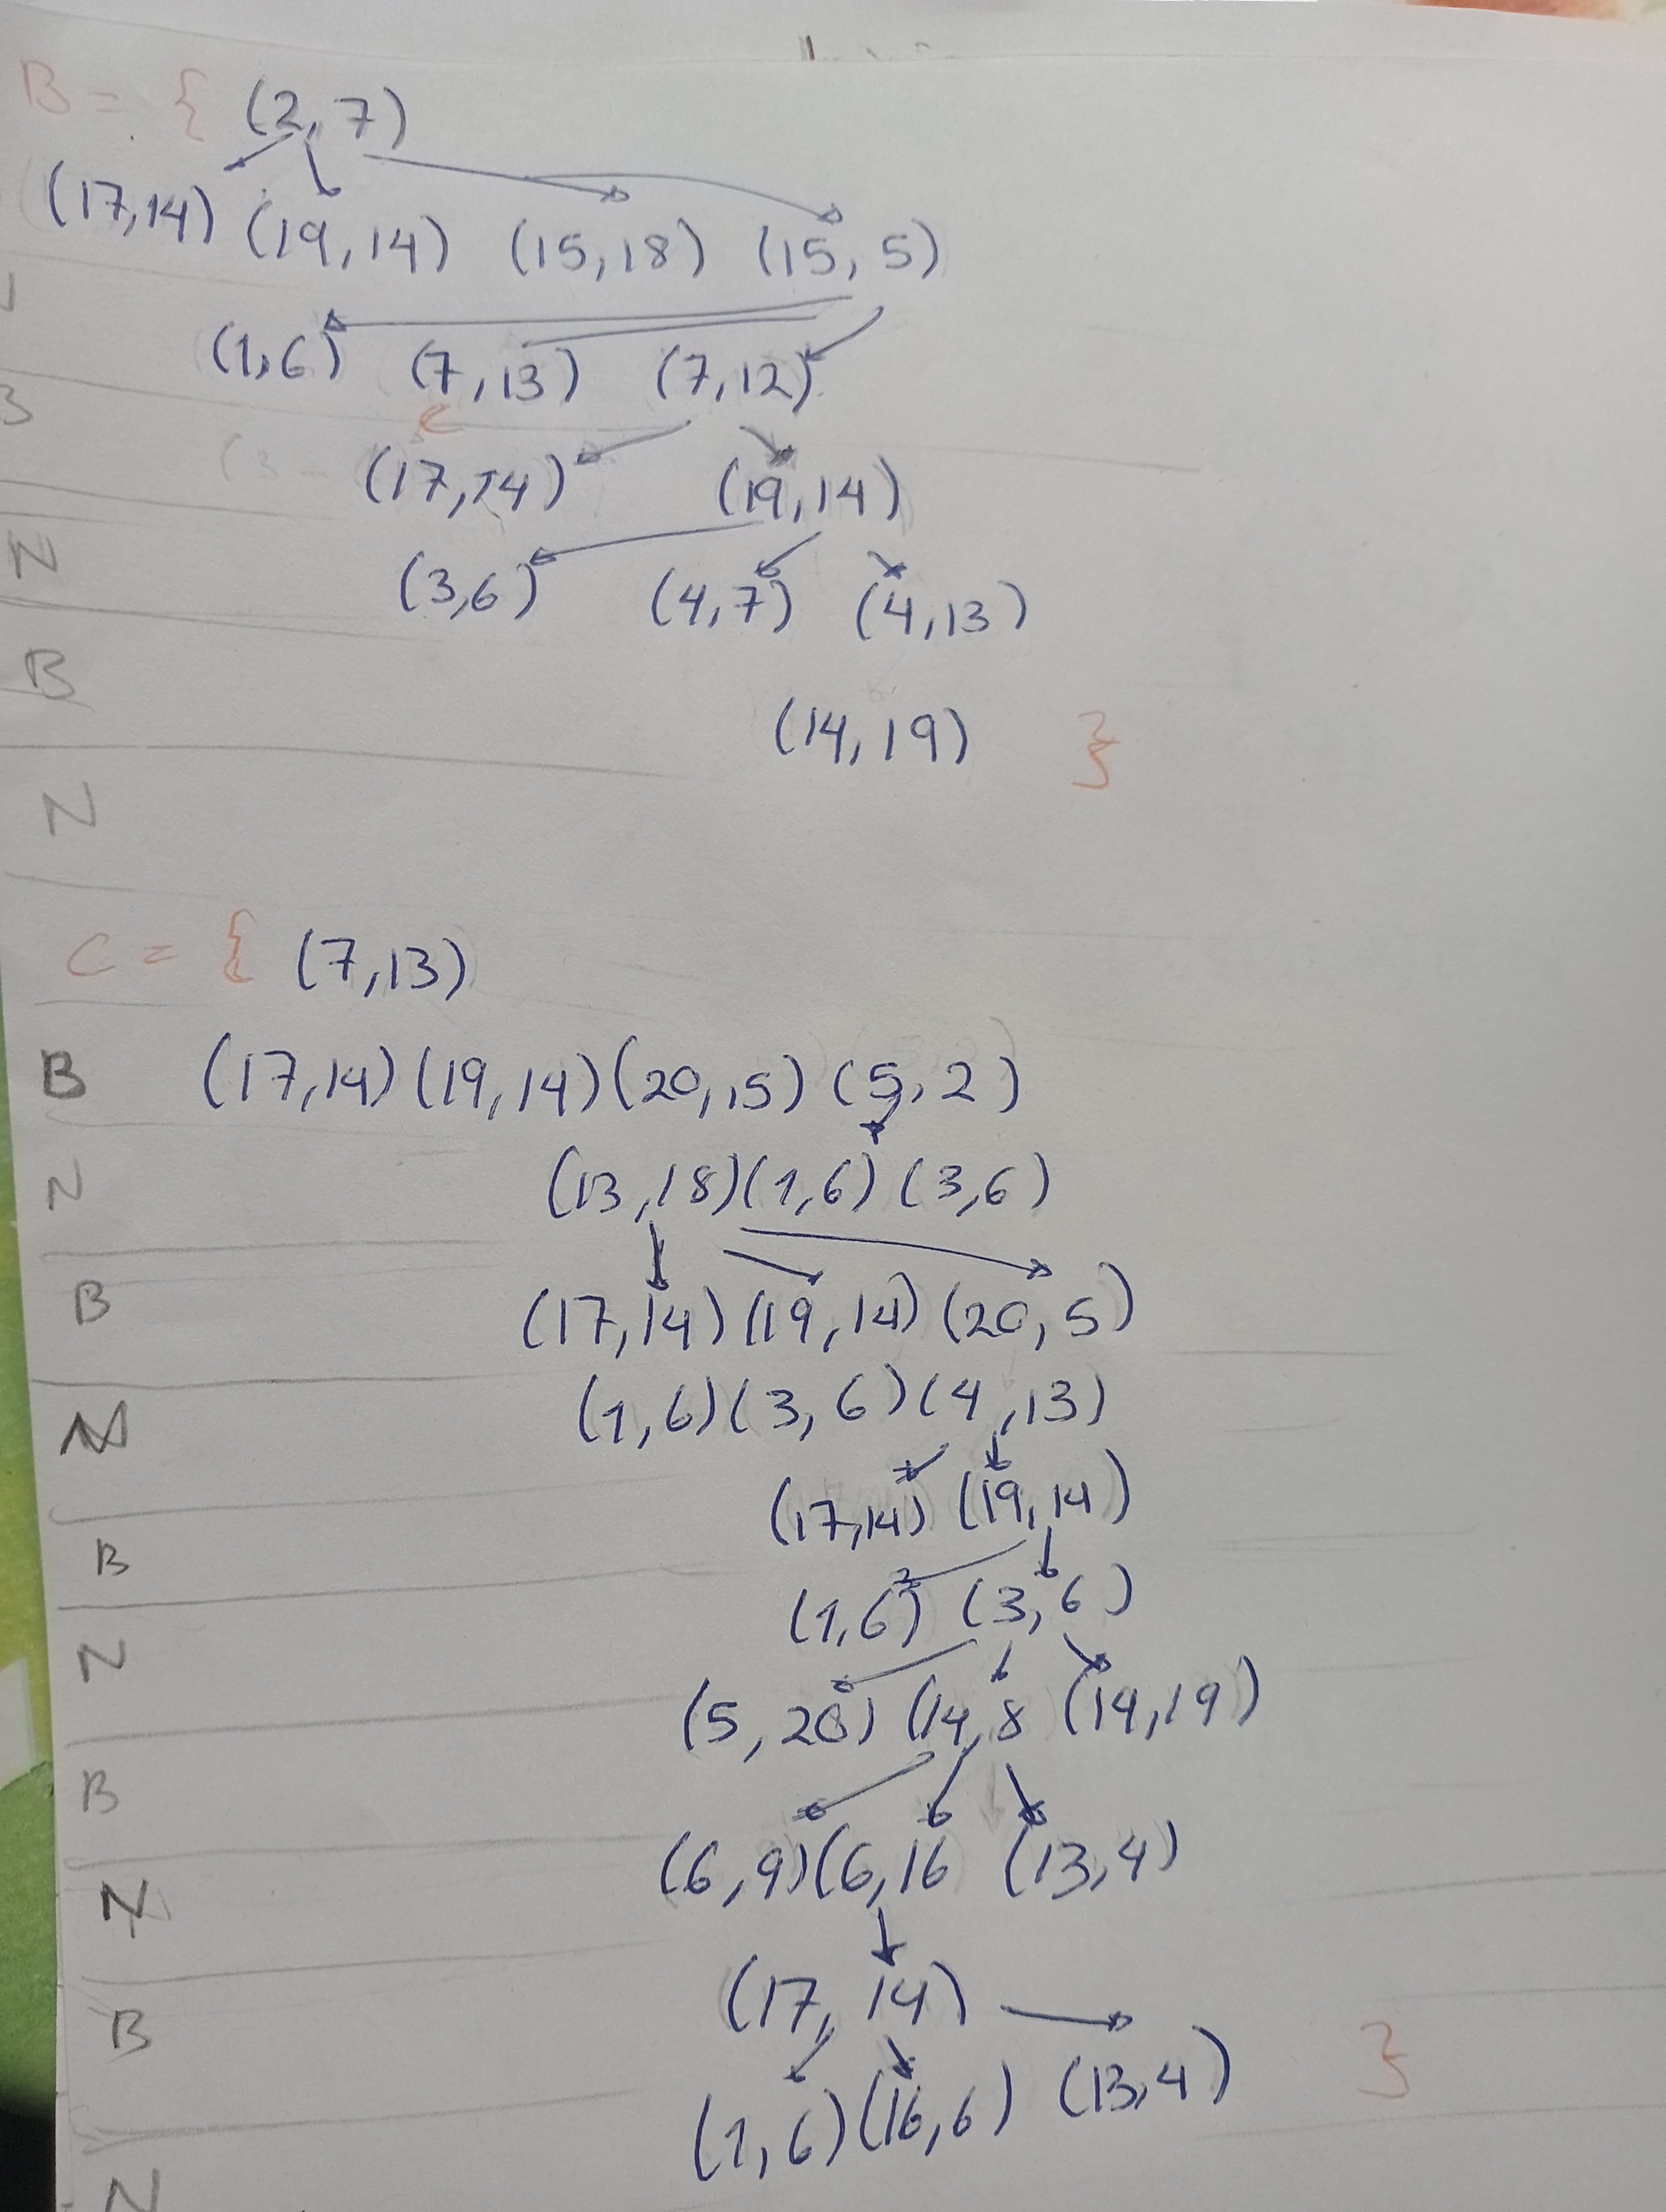 B = { (2,7)
(17,14) (19,14) (15,18) (15,5)
(1,6) (7,13) (7,12)
C
(17,14) (19,14)
N (3,6) (4,7) (4,13)
B
(14,19) }
N
C = { (7,13)
B (17,14) (19,14) (20,15) (5,2)
N (13,18) (1,6) (3,6)
B (17,14) (19,14) (20,5)
N (1,6) (3,6) (4,13)
B (17,14) (19,14)
N (1,6) (3,6)
B (5,20) (14,8 (14,19)
N (6,9) (6,16 (13,4)
B (17,14)
N (1,6) (16,6) (13,4) }